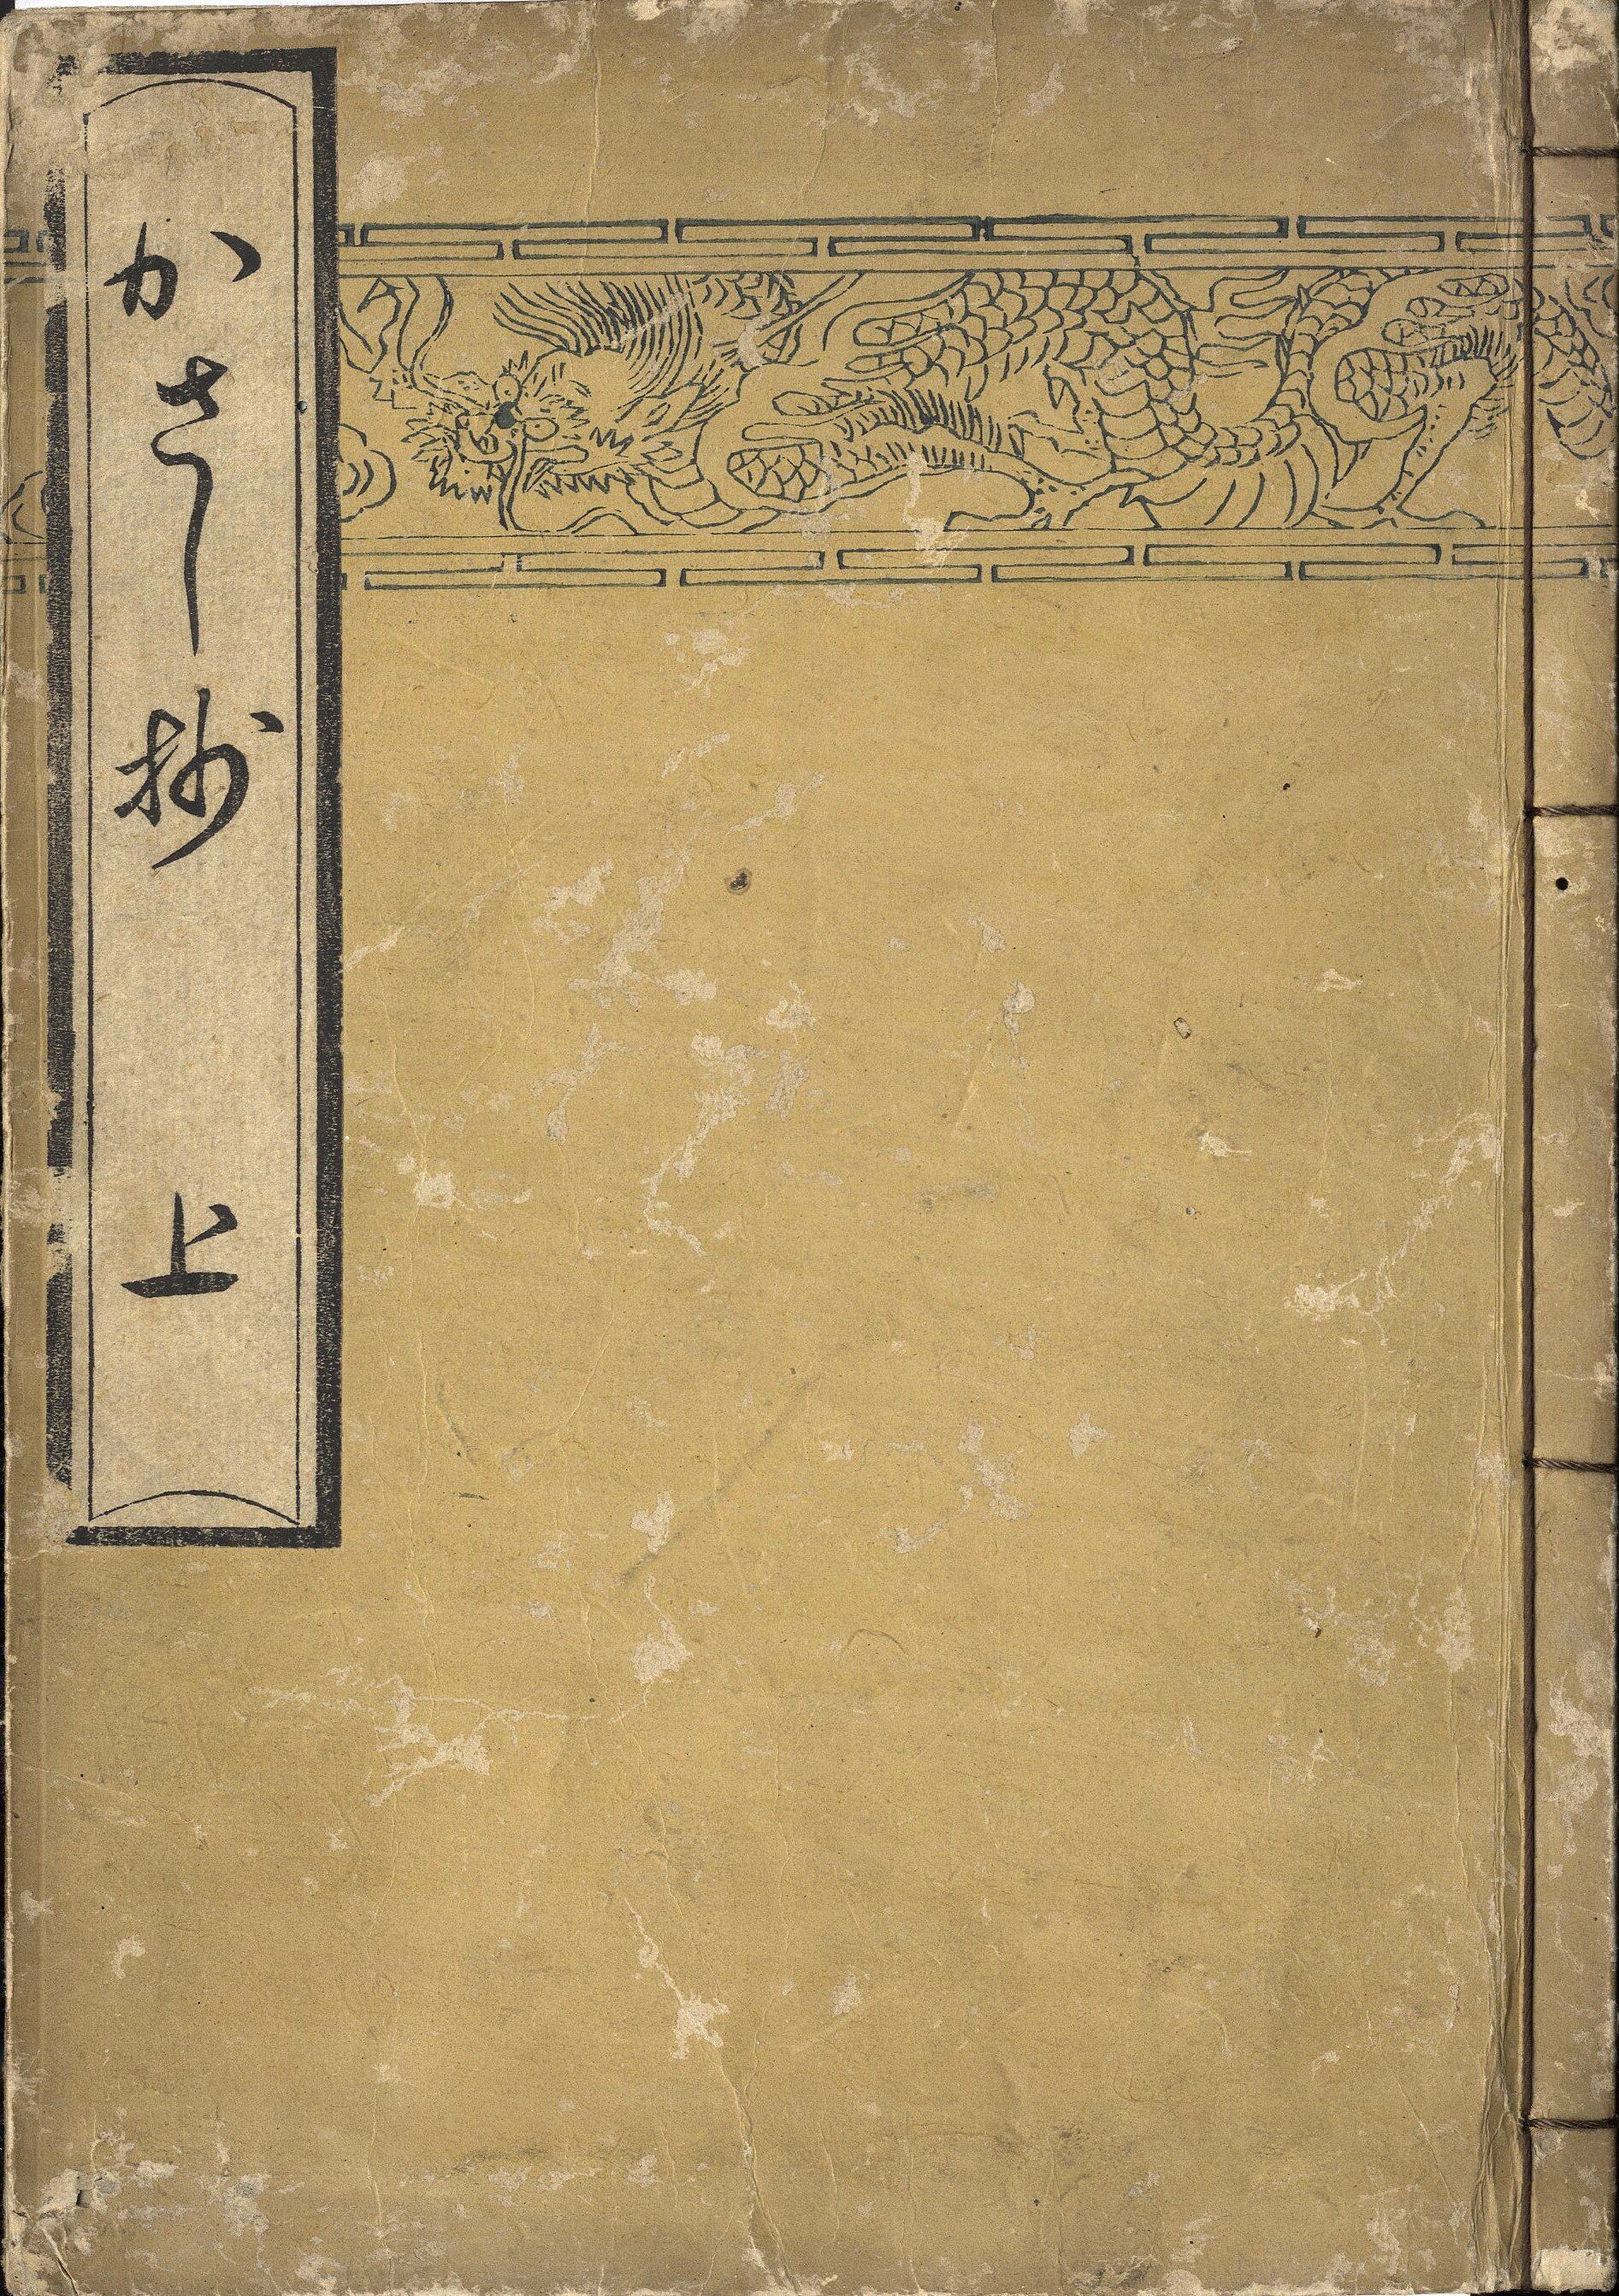 かさし抄 上